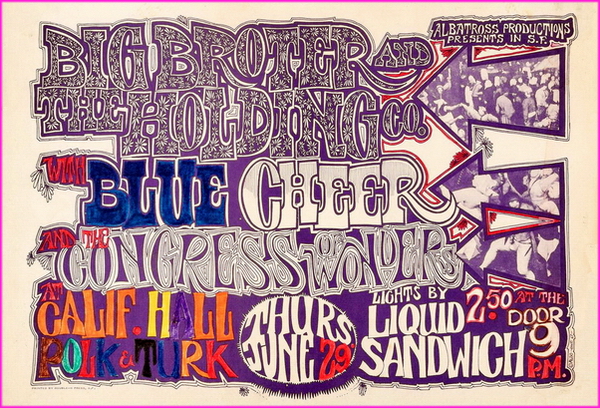 ALBATROSS PRODUCTIONS
PRESENTS IN S.F.
BIG BROTER AND
THE HOLDING CO.
WITH BLUE CHEER
AND THE CONGRESS OF WONDERS
AT CALIF. HALL
POLK & TURK
THURS
JUNE 29
LIGHTS BY
LIQUID
SANDWICH
2.50 AT THE
DOOR
9
P.M.